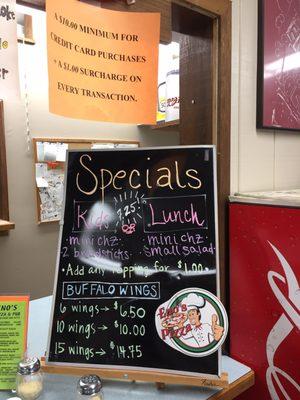 A $10.00 MINIMUM FOR
CREDIT CARD PURCHASES
* A $1.00 SURCHARGE ON
EVERY TRANSACTION.
Specials
Kids 7.25 or Lunch
· mini chz · · mini chz ·
· 2 breadsticks · small salad ·
· Add any topping for $1.00
BUFFALO WINGS
6 wings → $6.50
10 wings → $10.00
15 wings → $14.75
Eno's
Pizza
ENO'S
PIZZA & PUB